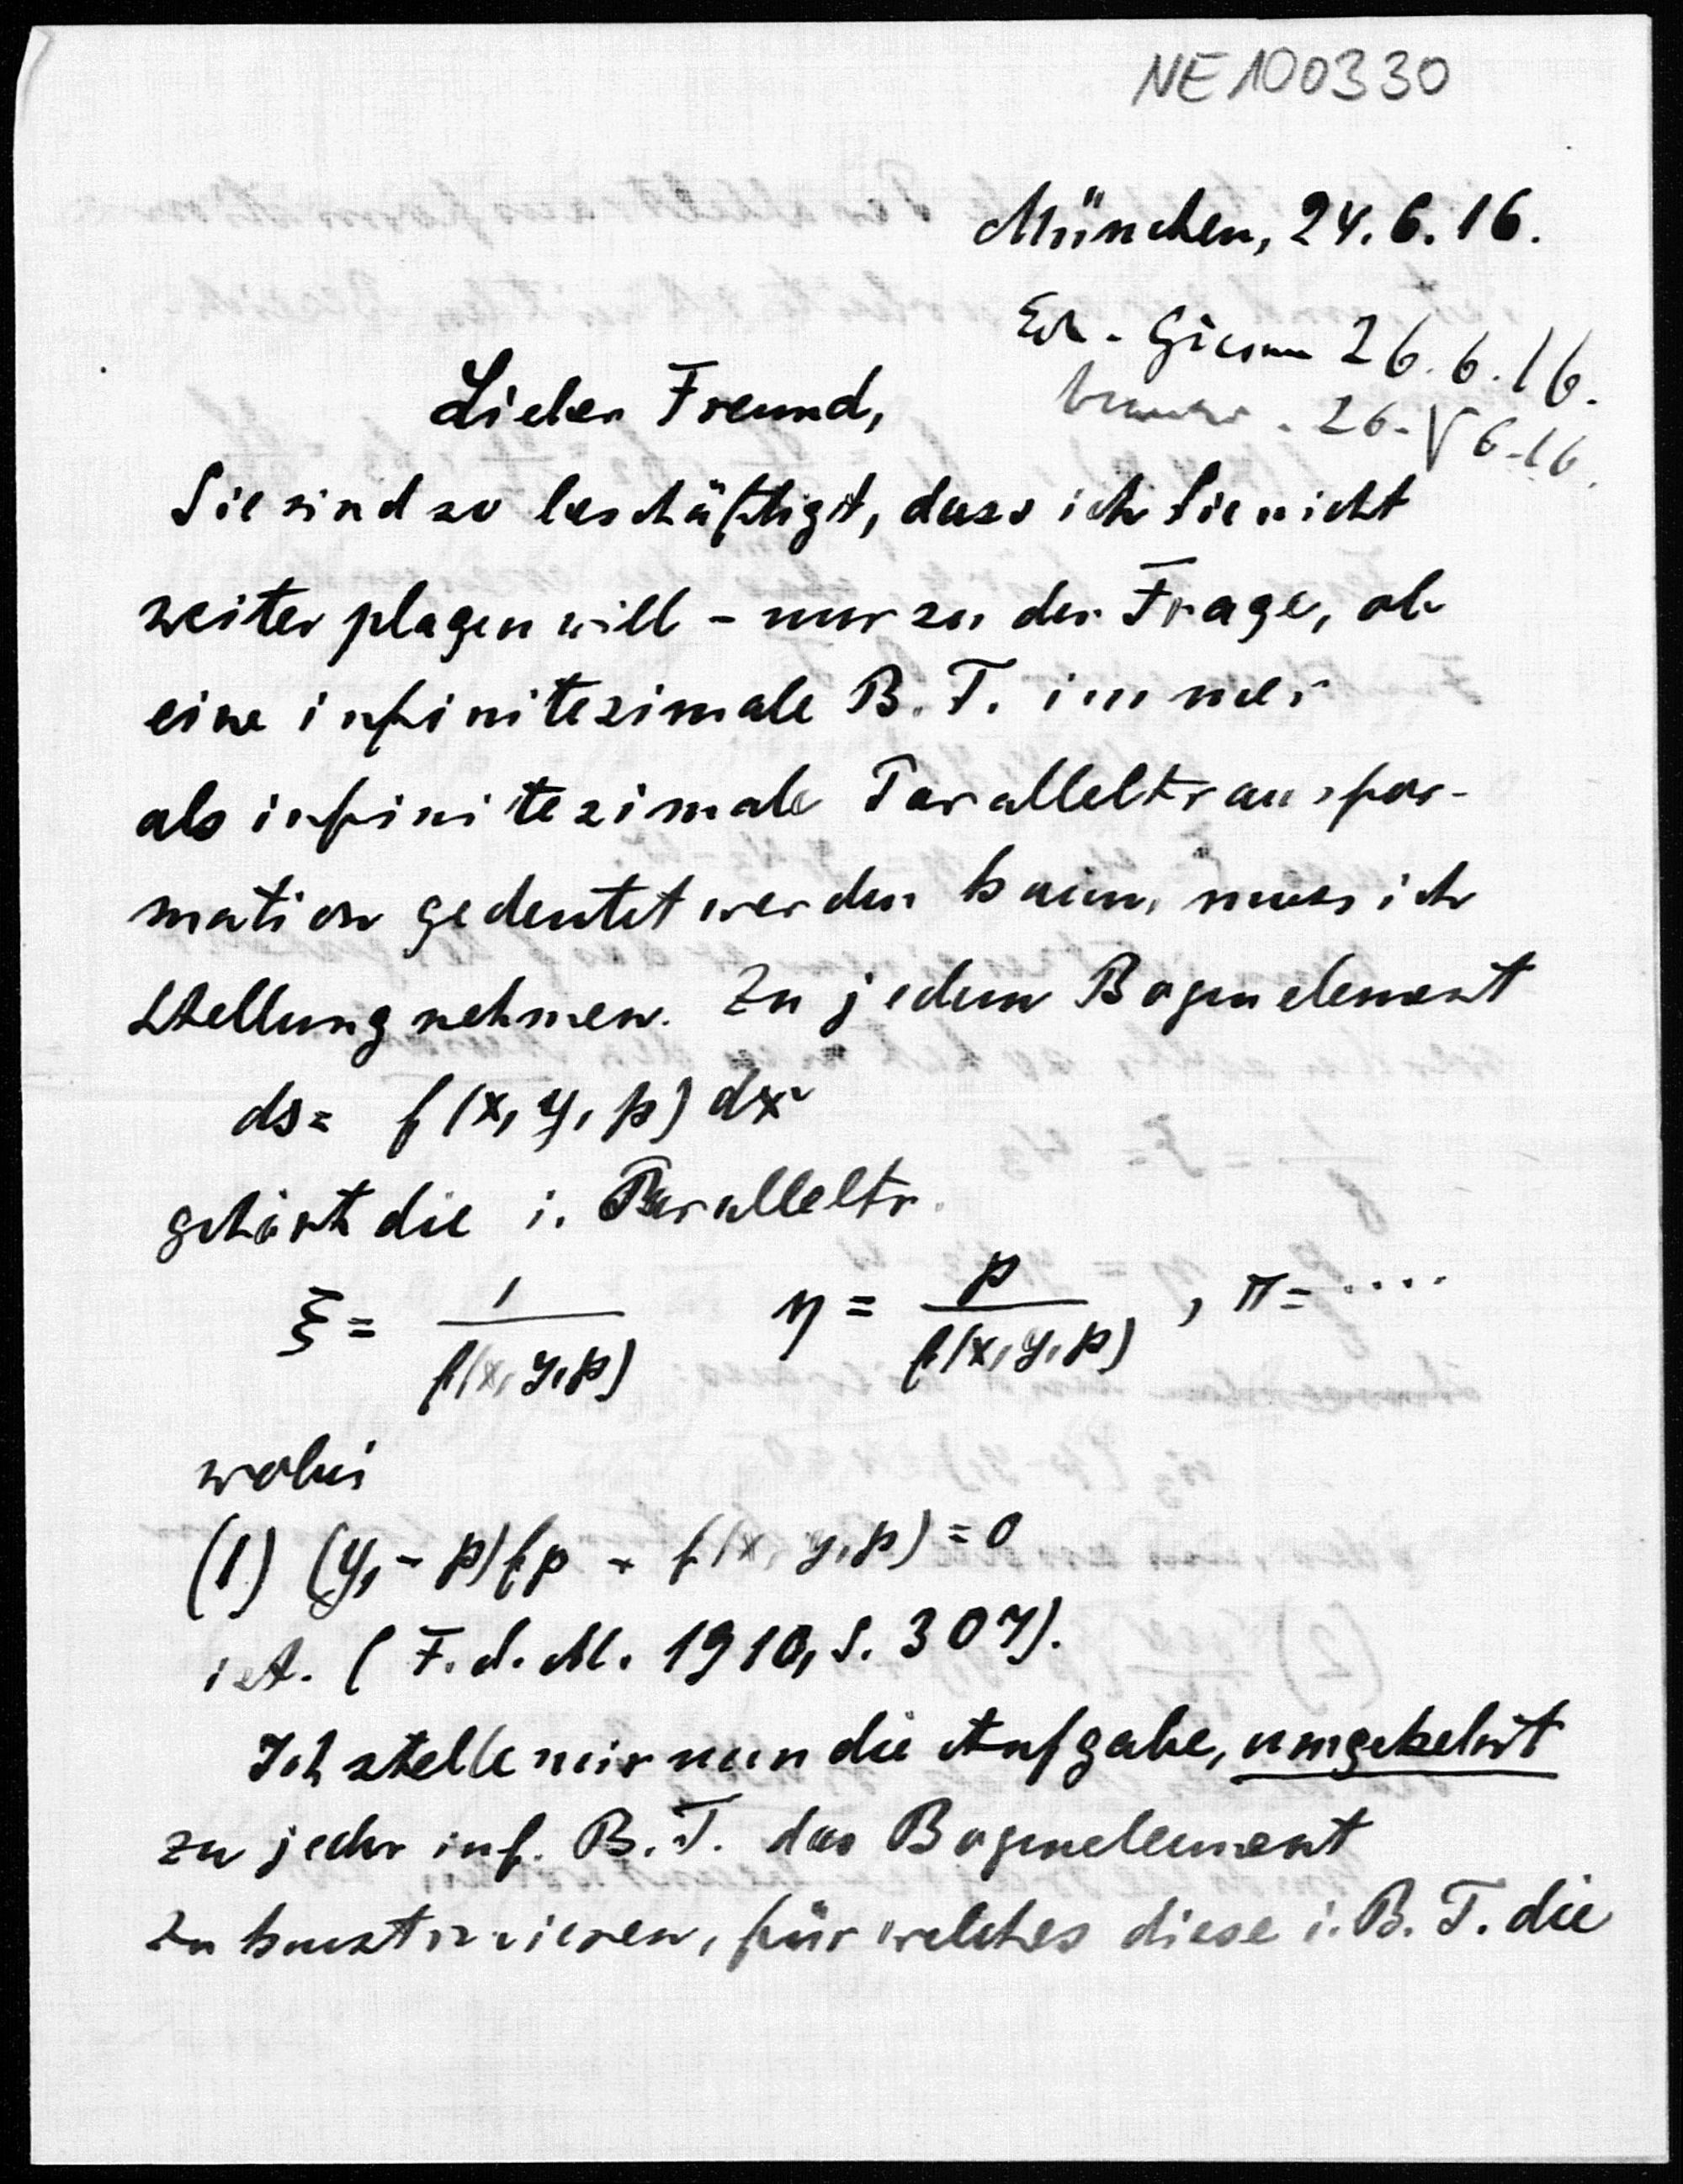 NE100330
München, 24.6.16.
Erh. Giessen 26.6.16.
26. V 6.16.
Lieber Freund,
Sie sind so beschäftigt, dass ich Sie nicht
weiter plagen will - nur zu der Frage, ob
eine infinitesimale B.T. immer
als infinitesimale Paralleltransfor-
mation gedeutet werden kann, muss ich
Stellung nehmen. Zu jedem Bogenelement
ds = f(x, y, p) dx
gehört die i. Paralleltr.
ξ = 1/f(x, y, p) η = p/f(x, y, p), π = ....
wobei
(1) (y₁ - p) fp + f(x, y, p) = 0
ist. (F.d.M. 1910, S. 307).
Ich stelle mir nun die Aufgabe, umgekehrt
zu jeder inf. B.T. das Bogenelement
zu konstruieren, für welches diese i. B. T. die